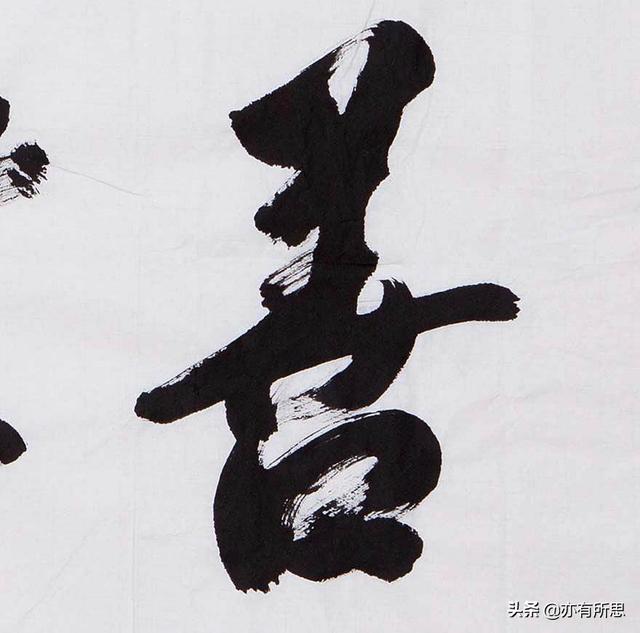 善
头条 @亦有所思